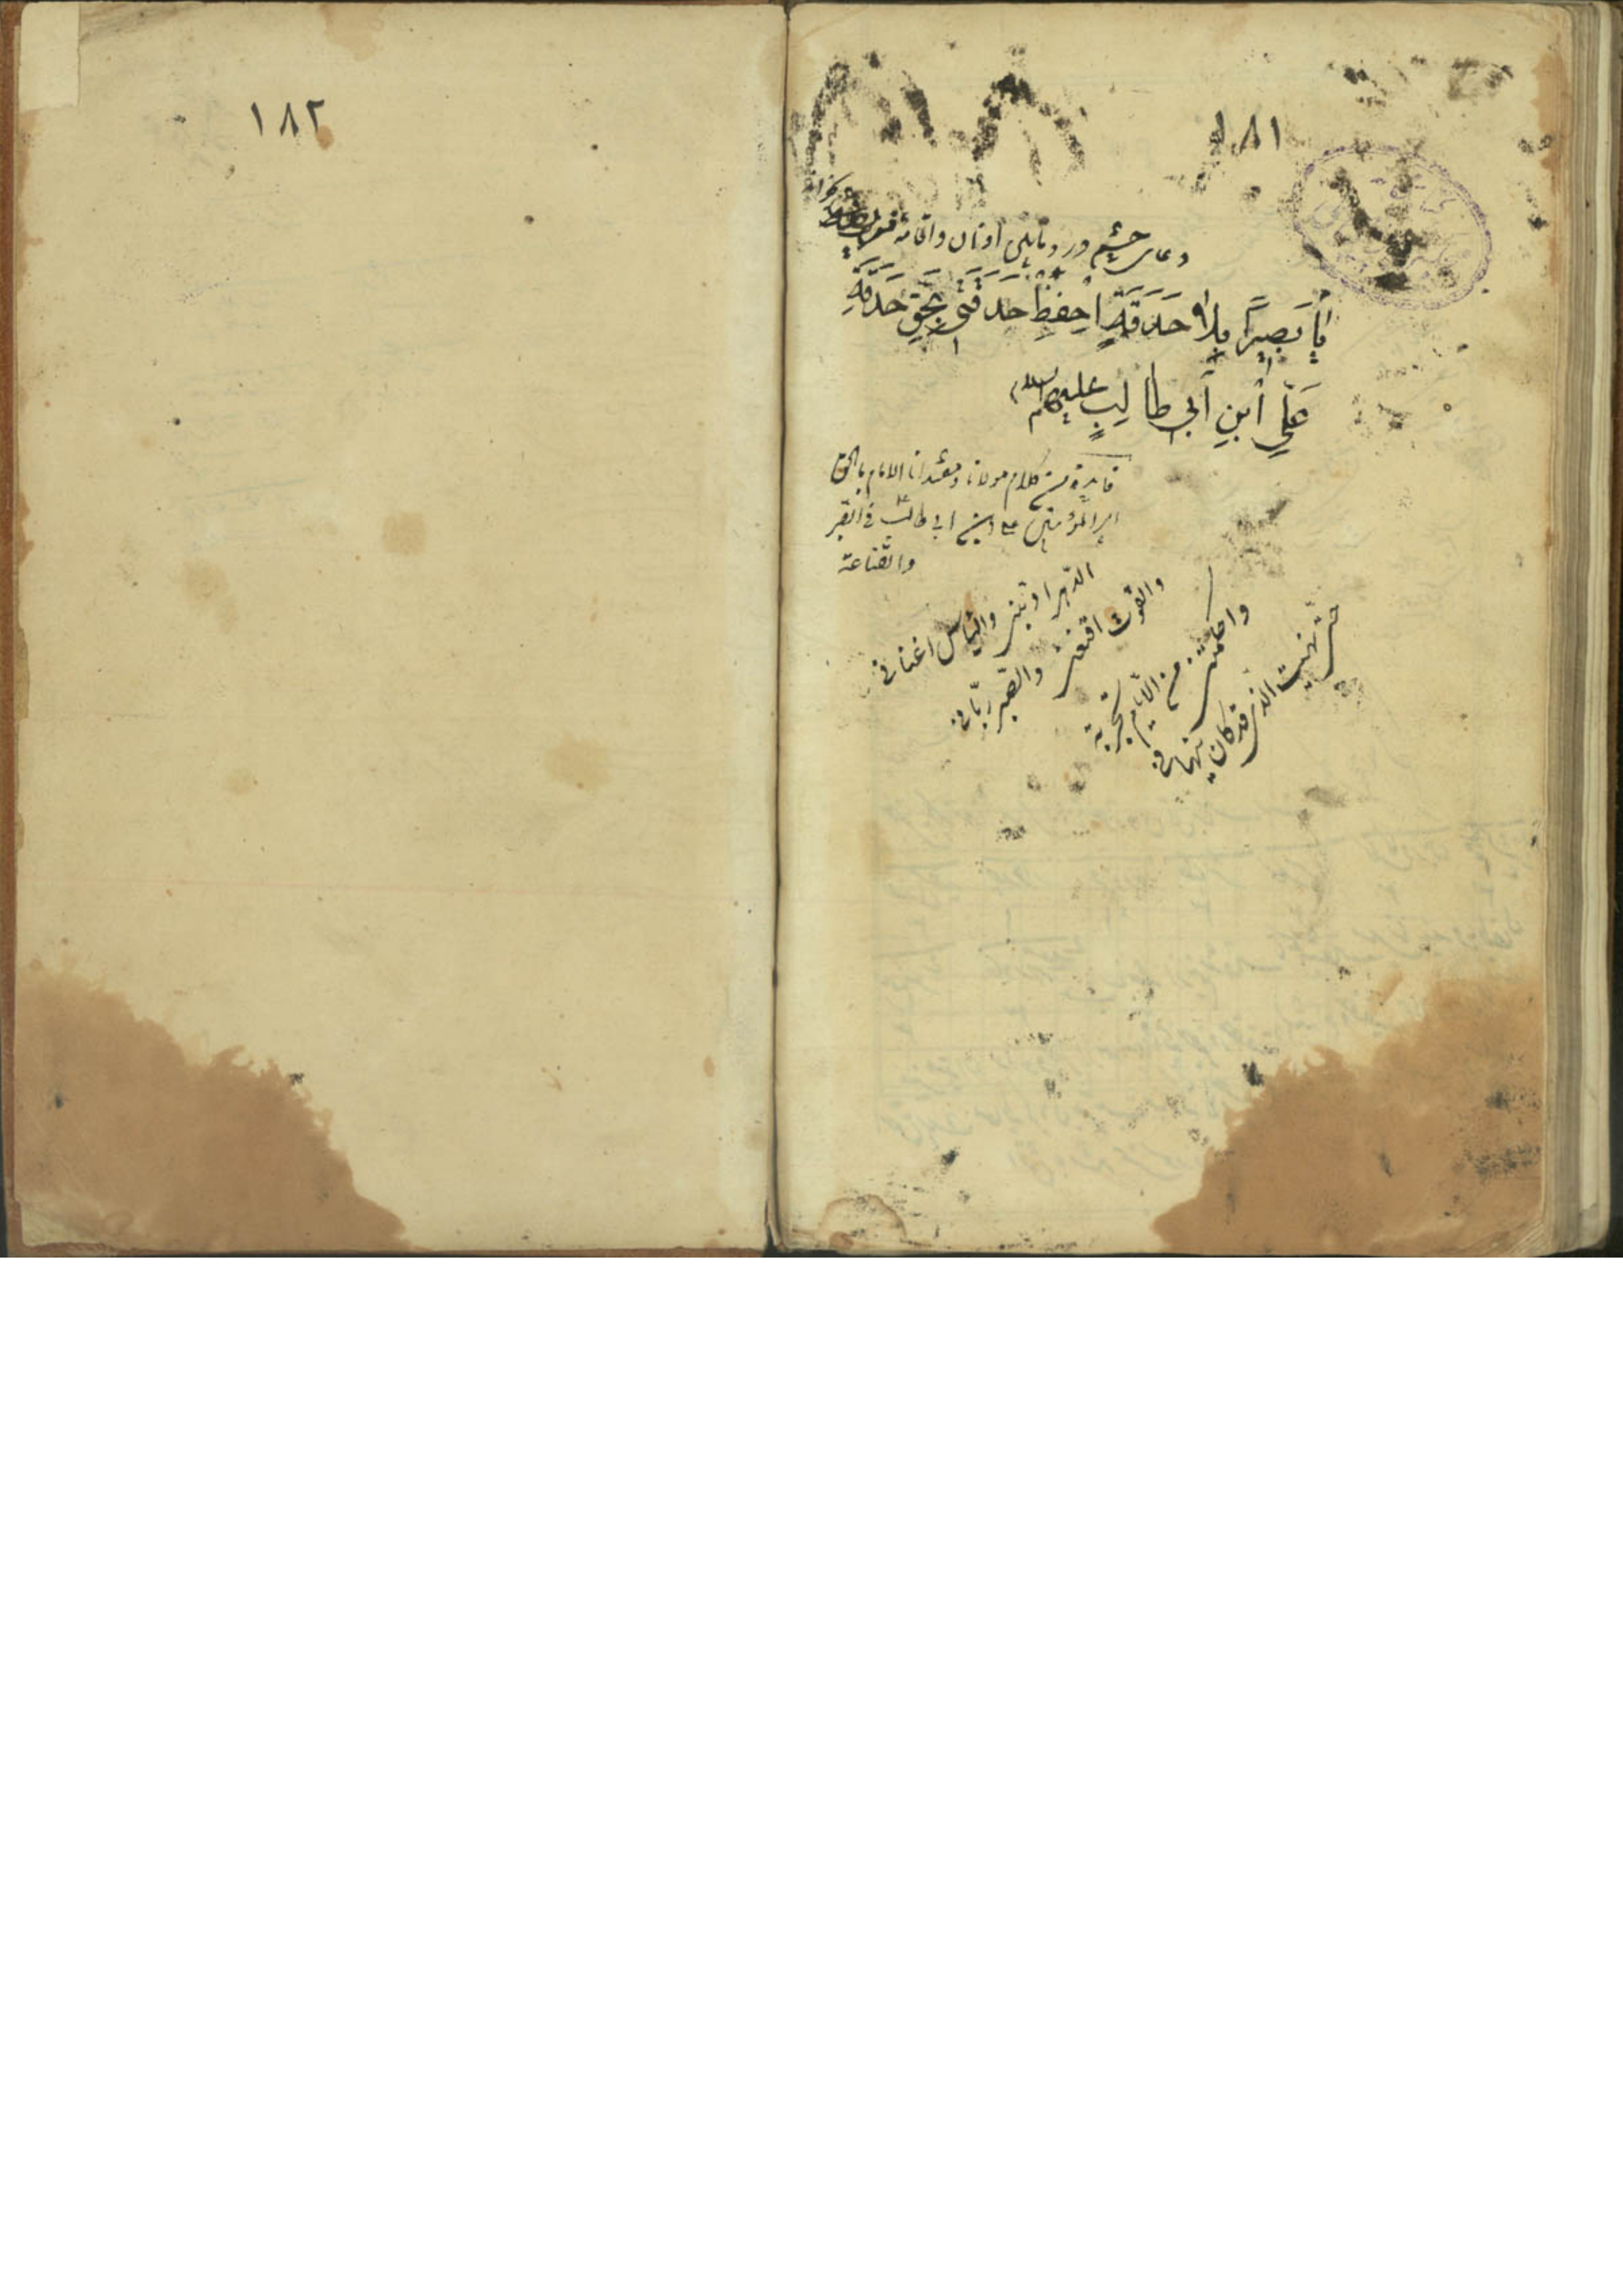 ١٨١
دعای چشم در میان اذان واقامه
یا بَصِیراً بِلا حَدَقَةٍ اِحفِظ حَدَقَتَی بِحَقِ حَدَقَةِ
عَلِیِ ابنِ اَبی طالِبٍ علیهما السلام
فایدة من کلام مولانا ومقتدانا الامام بالحق
امیر المؤمنین علی ابن ابی طالب فی الصبر
والقناعة
الدّهر ادّبنی والیأس اغنانی
والقوت اقنعنی والصّبر ربّانی
واحکمتنی من الایّام تجربة
حتی نهیت الذی قد کان ینهانی
١٨٢